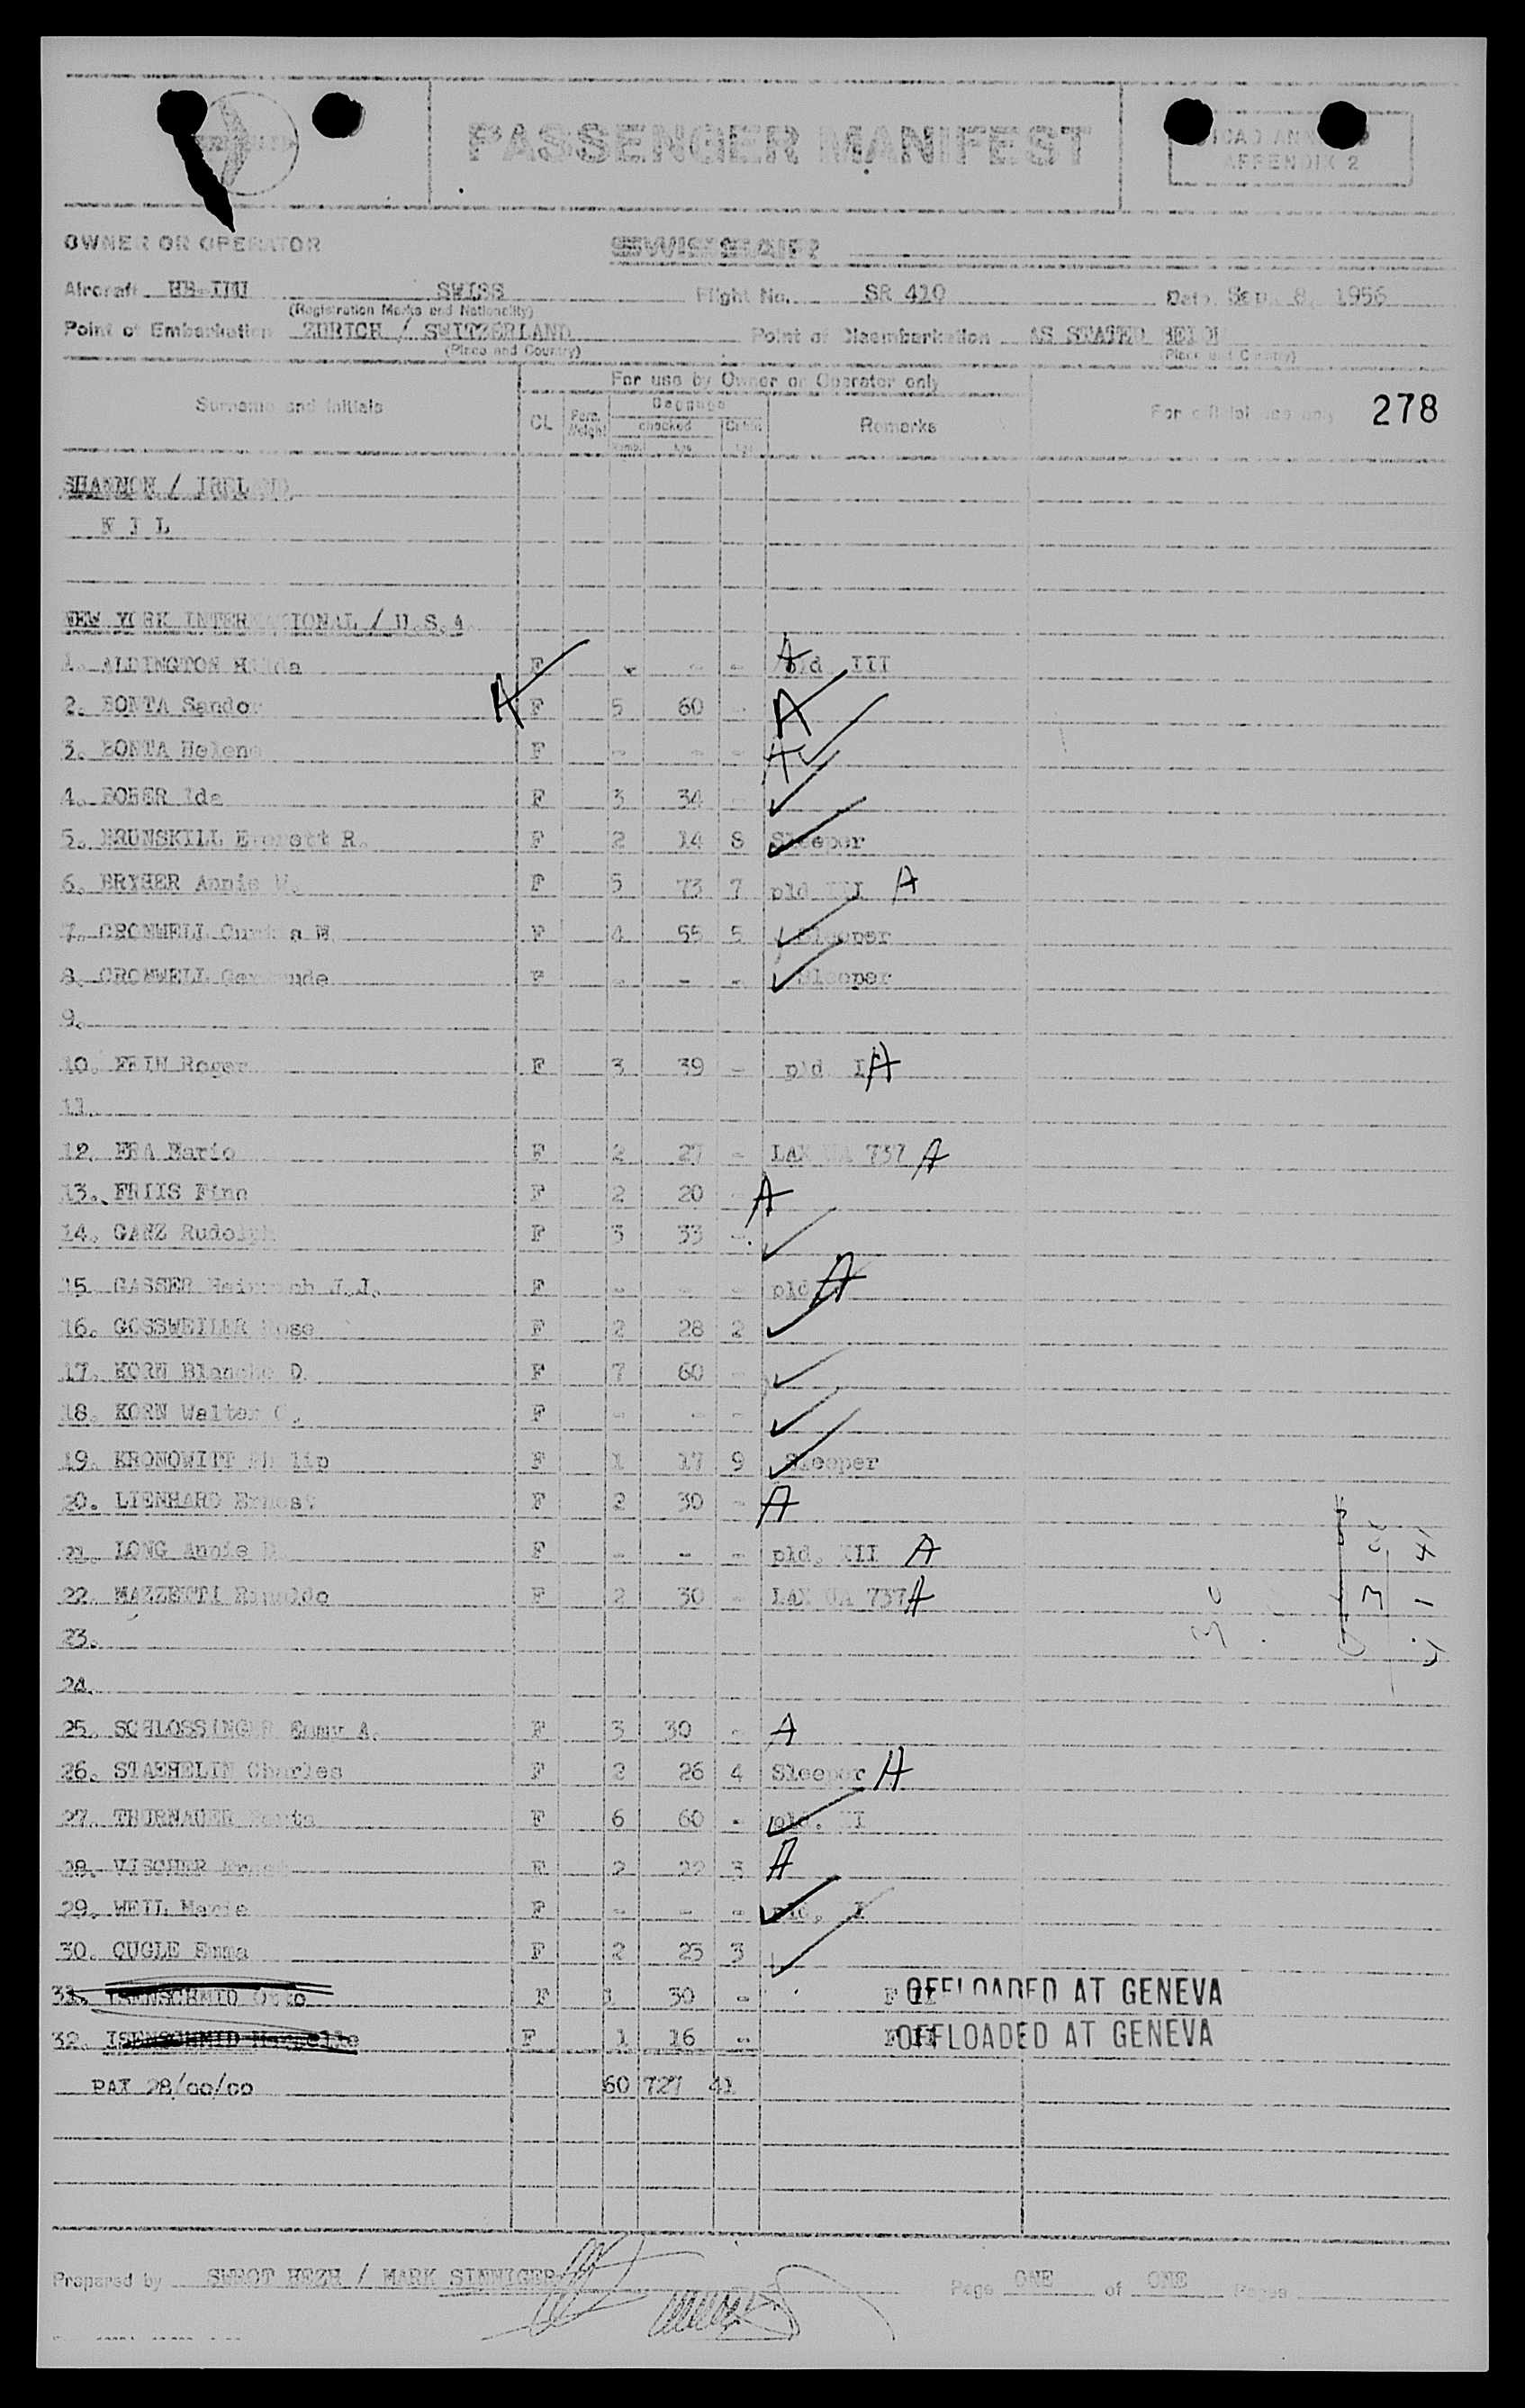 PASSENGER MANIFEST
APPENDIX 2
OWNER OR OPERATOR SWISSAIR
Aircraft SWISS Flight No. SR 410 Date Sep. 8, 1956
(Registration Marks and Nationality)
Point of Embarkation ZURICH / SWITZERLAND Point of Disembarkation AS STATED
(Place and Country) (Place and Country)
For use by Owner or Operator only
Surname and initials CL Pers. Weight Baggage checked Remarks For official use only 278
SHANNON / IRELAND
N I L
NEW YORK INTERNATIONAL / U.S.A.
1. ALDINGTON Hilda F - - - A pld III
2. BONTA Sandor A F 5 60 - A
3. BONTA Helene F - - - A
4. BOBER Ida F 3 34 -
5. BRUNSKILL Everett R. F 2 14 8 Sleeper
6. BRYHER Annie W. F 5 73 7 pld III A
7. CROMWELL W. F 4 55 5 Sleeper
8. CROMWELL Gertrude F - - - Sleeper
9.
10. Roger F 3 39 - pld A
11.
12. Mario F 2 27 - LAX UA 737 A
13. FRIIS Finn F 2 20 - A
14. GANZ Rudolph F 3 33 -
15. GASSER Heinrich J.J. F - - - pld A
16. GOSSWEILER Rose F 2 28 2
17. KORN Blanche D. F 7 60 -
18. KORN Walter C. F - - -
19. KRONOWITT Philip F 1 17 9 Sleeper
20. LIENHARD Ernest F 2 30 - A
21. LONG Annie D. F - - - pld. III A
22. MAZZETTI F 2 30 - LAX UA 737 A
23.
24.
25. SCHLOSSINGER Emmy A. F 3 30 - A
26. STAEHELIN Charles F 2 26 4 Sleeper A
27. THURNAUER F 6 60 - pld. II
28. VISCHER F 2 22 3 A
29. WEIL Marie F - - - pld.
30. CUGLE Emma F 2 25 3
31. ISENSCHMID Otto F 30 - OFFLOADED AT GENEVA
32. ISENSCHMID F 1 16 - OFFLOADED AT GENEVA
PAX 28/oo/oo 60 727 41
Prepared by / MARK SINNIGER Page ONE of ONE Pages